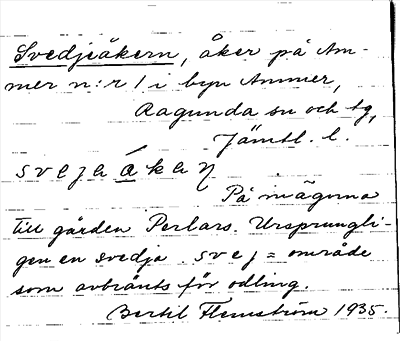 Svedjeåkern, åker på Am-
mer n:r 1 i byn Ammer,
Ragunda sn och tg,
Jämtl. l.
svejaákaɳ
På mägorna
till gården Perlars. Ursprungli-
gen en svedja. svej = område
som avbränts för odling.
Bertil Flemström 1935.